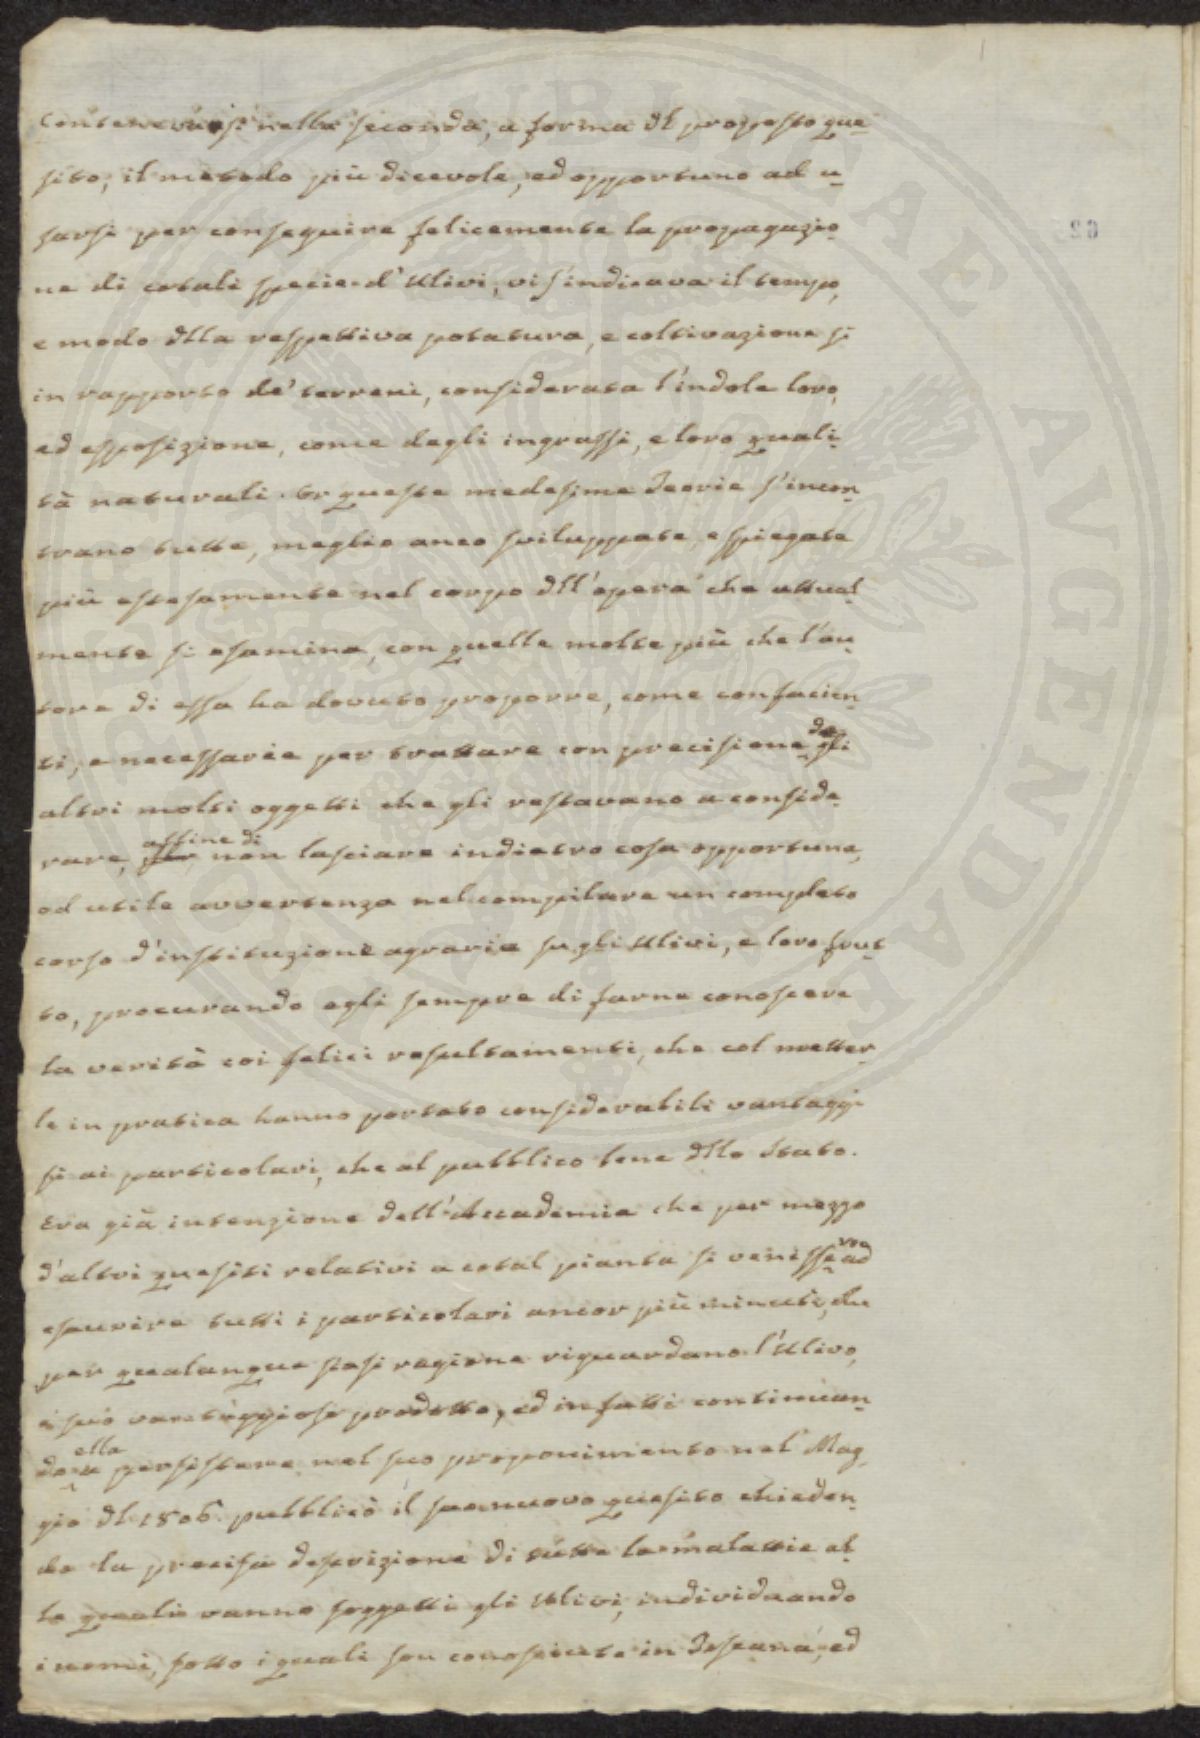 Contenevasi nella seconda, a forma dl proposto que-
sito, il metodo più dicevole, ed opportuno ad u-
sarsi per conseguire felicemente la propagazio-
ne di cotali specie d'Ulivi, vi s'indicava il tempo,
e modo dlla respettiva potatura, e coltivazione si
in rapporto de' terreni, considerata l'indole loro,
ed esposizione, come degli ingrassi, e loro quali-
tà naturali. Or queste medesime Teorie s'incon-
trano tutte, meglio anco sviluppate, e spiegate
più estesamente nel corpo dll'opera che attual-
mente si esamina, con quelle molte più che l'au-
tore di essa ha dovuto proporre, come confacien-
ti, e necessarie per trattare con precisione degli
altri molti oggetti che gli restavano a conside-
rare, per affine di non lasciare indietro cosa opportuna,
od utile avvertenza nel compilare un completo
corso d'instituzione agraria sugli Ulivi, e loro frut-
to, procurando egli sempre di farne conoscere
la verità coi felici resultamenti, che col metter-
le in pratica hanno portato considerabili vantaggi
si ai particolari, che al pubblico bene dllo Stato.
Era già intenzione dell'Accademia che per mezzo
d'altri quesiti relativi a cotal pianta si venissero ad
esaurire tutti i particolari ancor più minuti, che
per qualunque siasi ragione riguardano l'Ulivo,
e suo vantaggioso prodotto, ed in fatti continuan-
do ella a persistere nel suo proponimento nel Mag-
gio dl 1806 pubblicò il suo nuovo quesito chieden-
do la precisa descrizione di tutte le malattie al-
le quali vanno soggetti gli Ulivi, individuando
i nomi, sotto i quali son conosciute in Toscana, ed